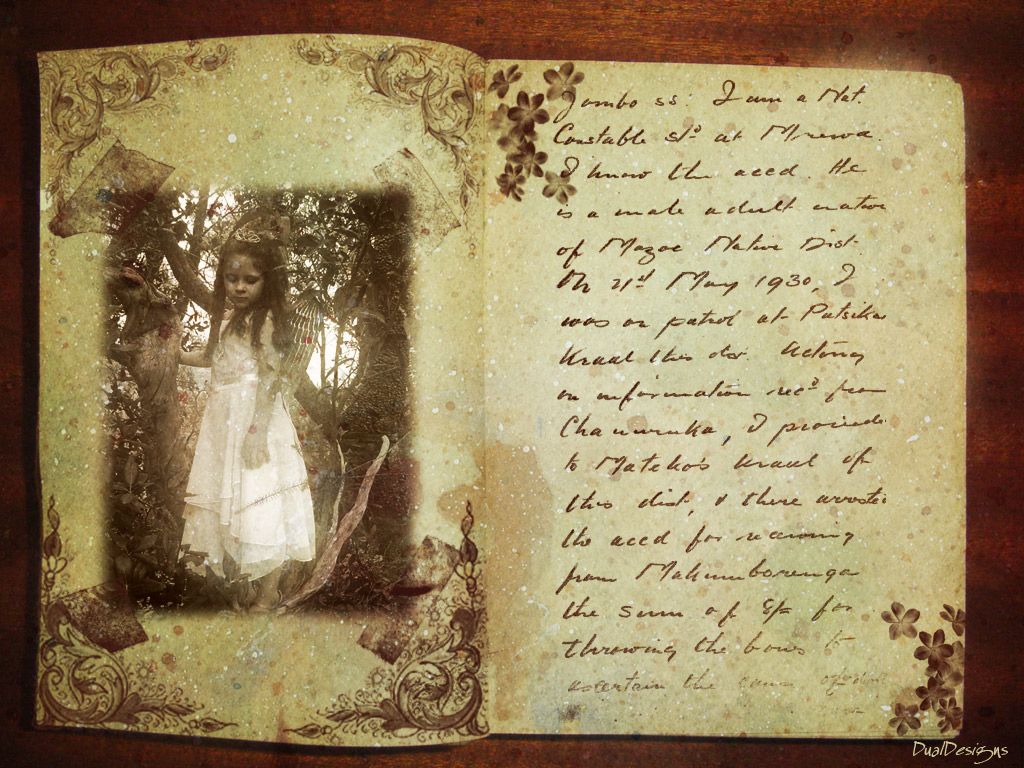 Jombo ss: I am a Nat.
Constable std at Mrewa.
I know the accd. He
is a male adult native
of Mazoe Native Dist.
On 21st May 1930, I
was on patrol at Patsika
Kraal this dist. Acting
on information recd from
I proceeded
to Mateko's Kraal of
this dist, & there arrested
the accd for receiving
from
the sum of for
throwing the bones to
ascertain the cause of
DualDesigns